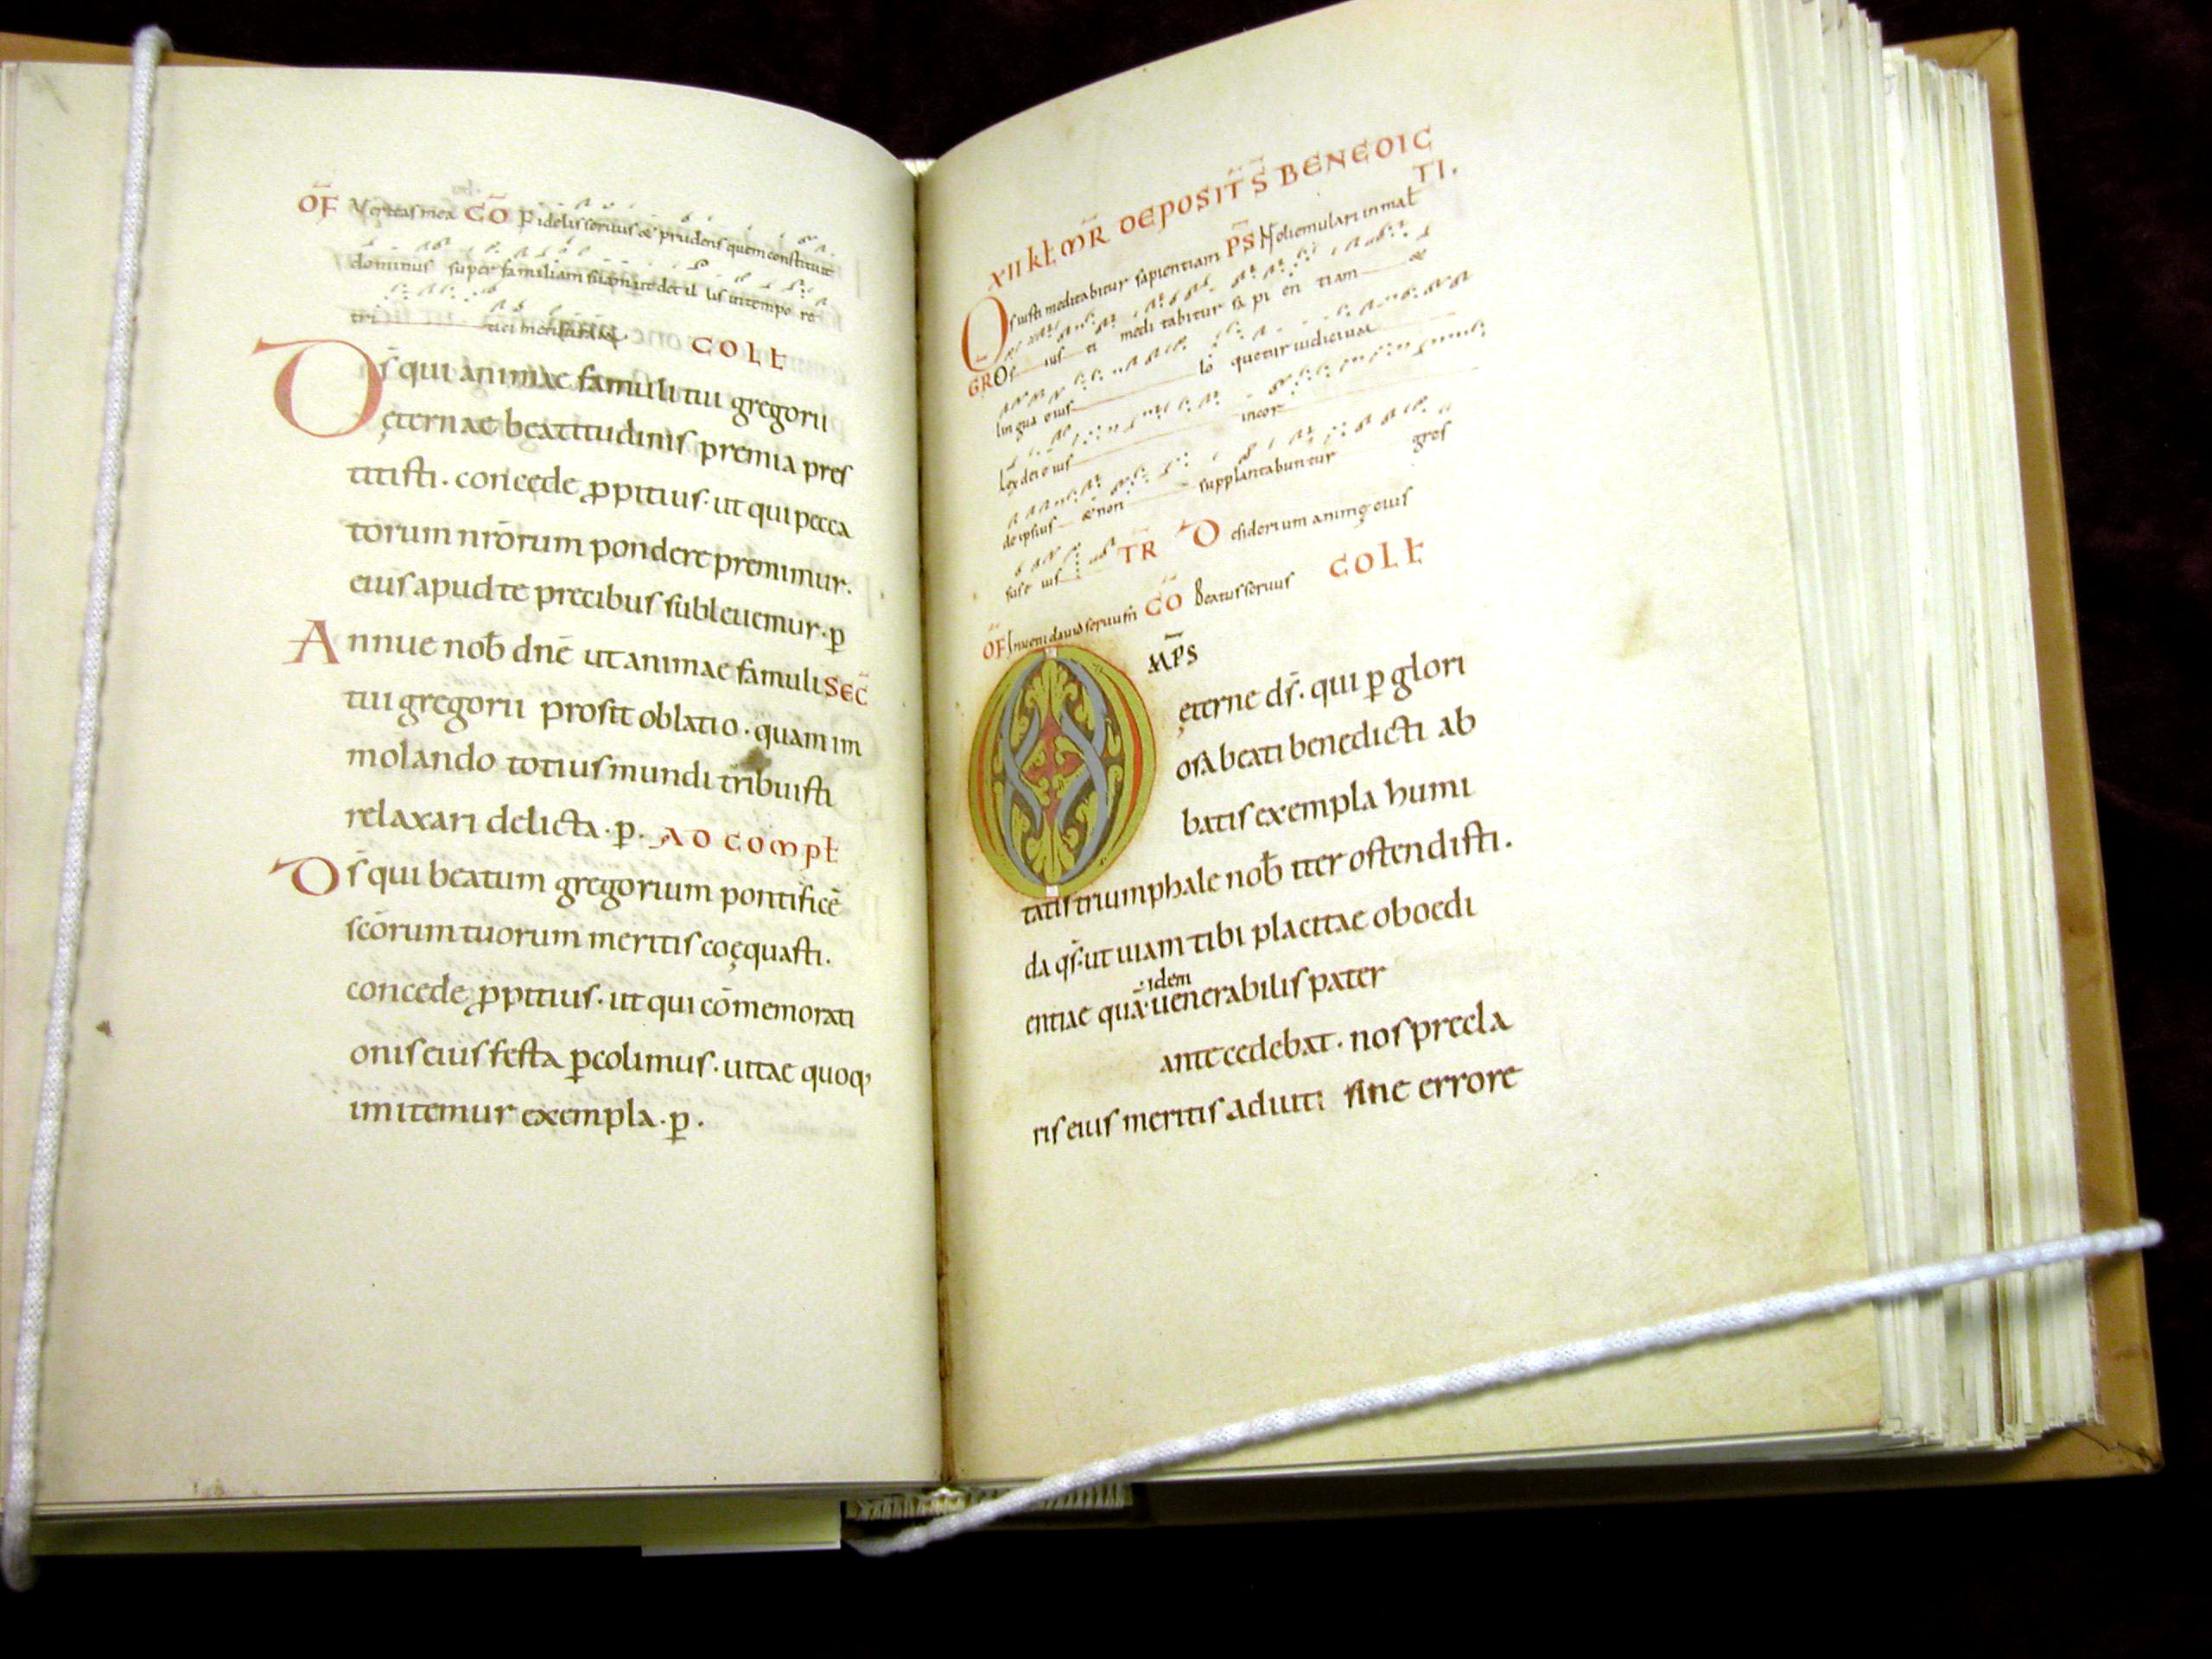 OF̄ Veritas mea CŌ Fidelis seruus & prudens quem constituit
dominus super familiam suam ut det il lis in tempo re
tri tici mensuram.
COLŁ
Dš qui animae famuli tui gregorii
ęternae beatitudinis premia pres
titisti. concede ꝓpitius. ut qui pecca
torum nr̄orum pondere premimur.
eius apud te precibus subleuemur. ꝑ
Annue nob̄ dnē ut animae famuli SEC̄
tui gregorii prosit oblatio. quam im
molando totius mundi tribuisti
relaxari delicta. ꝑ. AD COMPŁ
Dš qui beatum gregorium pontificē
scōrum tuorum meritis coęquasti.
concede ꝓpitius. ut qui cōmemorati
onis eius festa ꝑcolimus. uitae quoq;
imitemur exempla. ꝑ.
XII KŁ MR̄ DEPOSIT̄ S̄ BENEDIC
TI.
Os iusti meditabitur sapientiam PS̄ Noli emulari in mal̄
GR Os ius ti medi tabitur sa pi en tiam &
lin gua eius lo quetur iudicium
Lex dei e ius incor
de ipsius & non supplantabuntur gres
sus e ius TR̄ Desiderium animę eius
OF̄ Inueni dauid seruum̄ CŌ Beatus seruus COLŁ
OMP̄S
ęterne dš. qui ꝑ glori
osa beati benedicti ab
batis exempla humi
tatis triumphale nob̄ iter ostendisti.
da qš. ut uiam tibi placitae oboedi
idem
entiae quā uenerabilis pater
antecedebat. nos precla
ris eius meritis aduiti sine errore